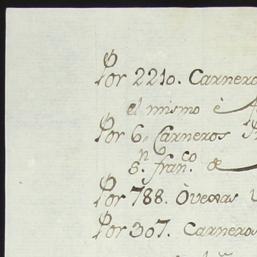 Por 2210. Carnero
el mismo è
Por 6, Carneros
Sn. Franco. de
Por 788. Ovejas
Por 307. Carneros